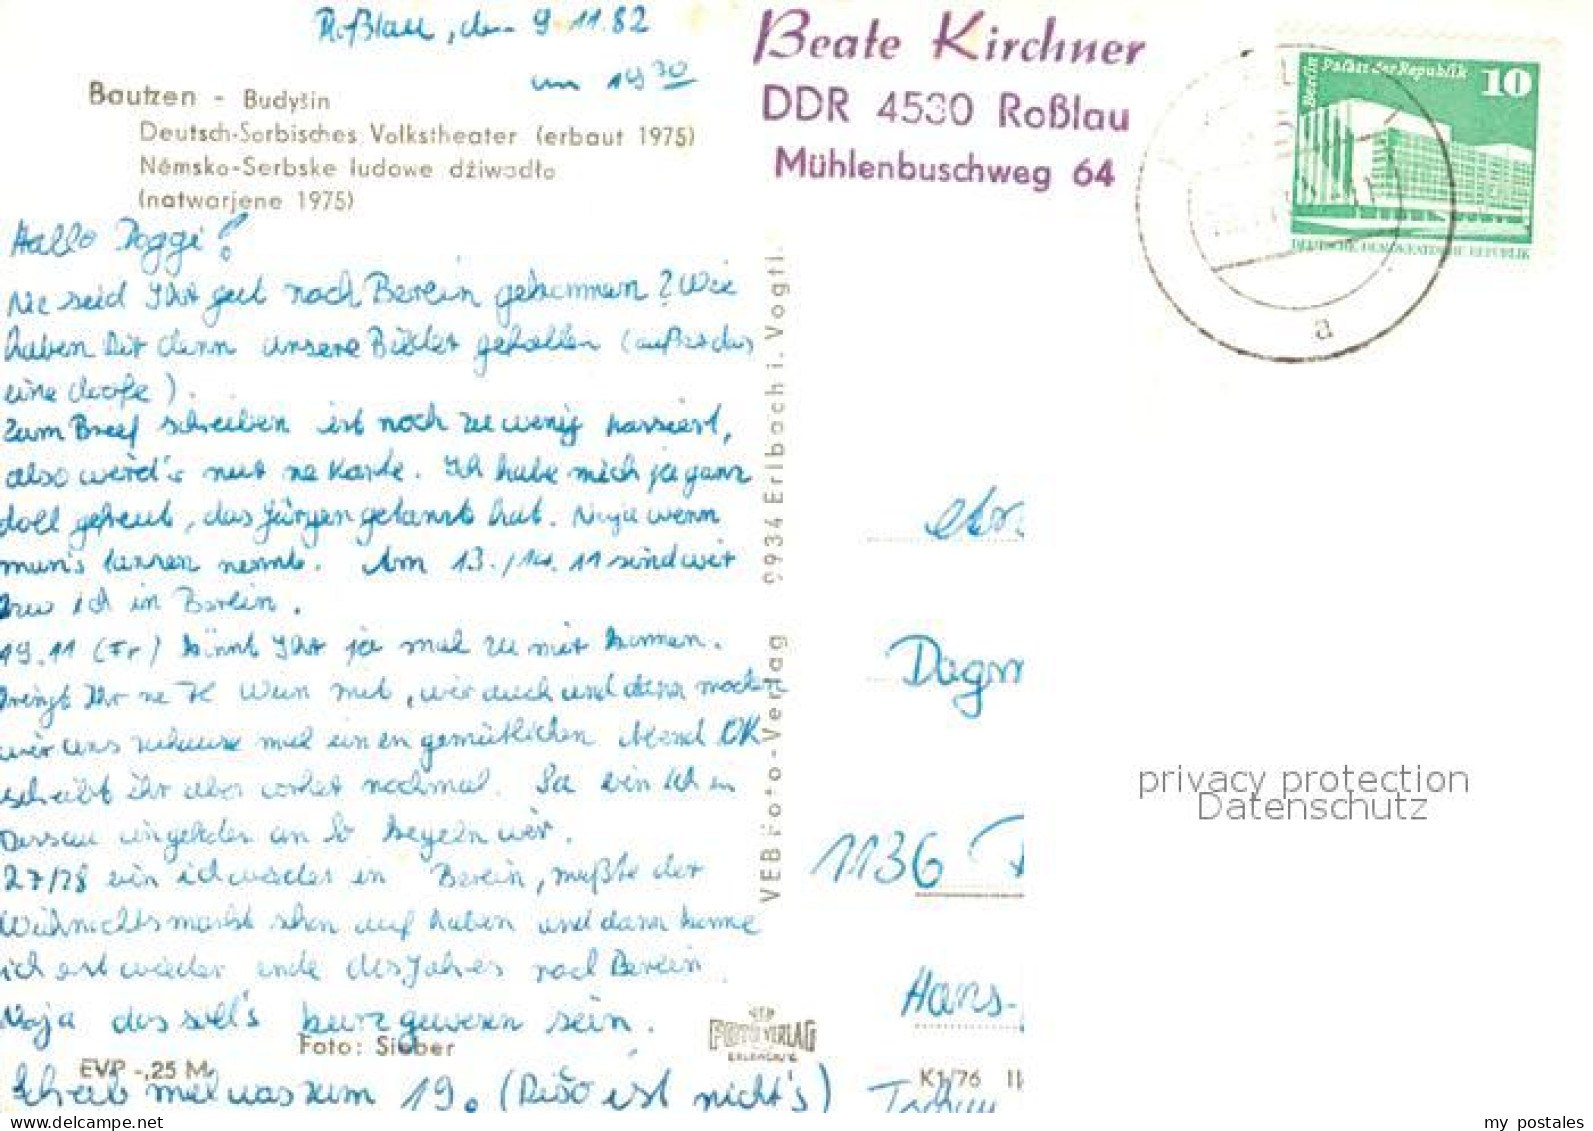 Roßlau, den 9.11.82
um 19 30
Bautzen - Budyšin
Deutsch-Sorbisches Volkstheater (erbaut 1975)
Němsko-Serbske ludowe dźiwadło
(natwarjene 1975)
Beate Kirchner
DDR 4530 Roßlau
Mühlenbuschweg 64
Berlin Palast der Republik 10
DEUTSCHE DEMOKRATISCHE REPUBLIK
a
Hallo Doggi!
Na seid Ihr gut nach Berlin gekommen? Wie
haben Dir denn unsere Bilder gefallen (außer das
eine doofe).
Zum Brief schreiben ist noch zu wenig passiert,
also werd's nur ne Karte. Ich habe mich ja ganz
doll gefreut, das Jürgen getanzt hat. Naja wenn
man's tanzen nennt. Am 13./14.11 sind wir
bzw ich in Berlin.
19.11 (Fr) könnt Ihr ja mal zu mir kommen.
bringt Ihr ne Fl Wein mit, wir auch und dann machen
wir uns zuhause mal einen gemütlichen Abend OK
schreibt ihr aber vorher nochmal. Sa bin ich in
Dessau eingeladen an So kegeln wir.
27/28 bin ich wieder in Berlin, müßte der
Weihnachtsmarkt schon auf haben und dann komme
ich erst wieder ende des Jahres nach Berlin
Naja das soll's kurz gewesen sein.
Foto: Sieber
EVP -,25 M
Schreib mal was zum 19. (Dišo ist nicht's)
VEB Foto-Verlag 9934 Erlbach i. Vogtl.
VEB
FOTO VERLAG
ERLBACH/V.
K1/76
Dagm
1136
Hans-
privacy protection
Datenschutz
my postales